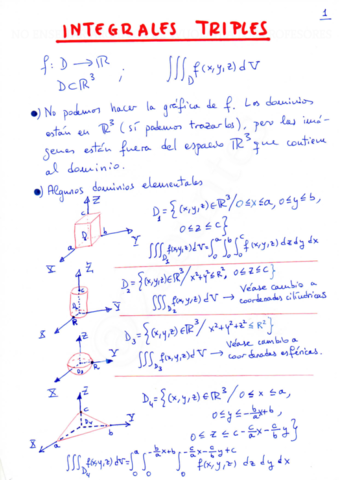 1
INTEGRALES TRIPLES
f: D → ℝ ; ∭_D f(x,y,z) dV
D⊂ℝ³
•) No podemos hacer la gráfica de f. Los dominios
están en ℝ³ (sí podemos trazarlos), pero las imá-
genes están fuera del espacio ℝ³ que contiene
al dominio.
•) Algunos dominios elementales
Z
c
D₁
a
b
X
Y
D₁={(x,y,z)∈ℝ³/0≤x≤a, 0≤y≤b,
0≤z≤c}
∭_D₁ f(x,y,z)dV=∫₀^a∫₀^b∫₀^c f(x,y,z) dz dy dx
Z
c
R
X
Y
D₂={(x,y,z)∈ℝ³/x²+y²≤R², 0≤z≤c}
∭_D₂ f(x,y,z)dV → Véase cambio a
coordenadas cilíndricas
Z
R
R
X
Y
D₃={(x,y,z)∈ℝ³/x²+y²+z²≤R²}
∭_D₃ f(x,y,z)dV → Véase cambio a
coordenadas esféricas.
Z
c
D₄
a
b
X
Y
D₄={(x,y,z)∈ℝ³/0≤x≤a,
0≤y≤-b/a x+b,
0≤z≤c-c/a x-c/b y}
∭_D₄ f(x,y,z)dV=∫₀^a∫₀^(-b/a x+b)∫₀^(-c/a x-c/b y+c) f(x,y,z) dz dy dx